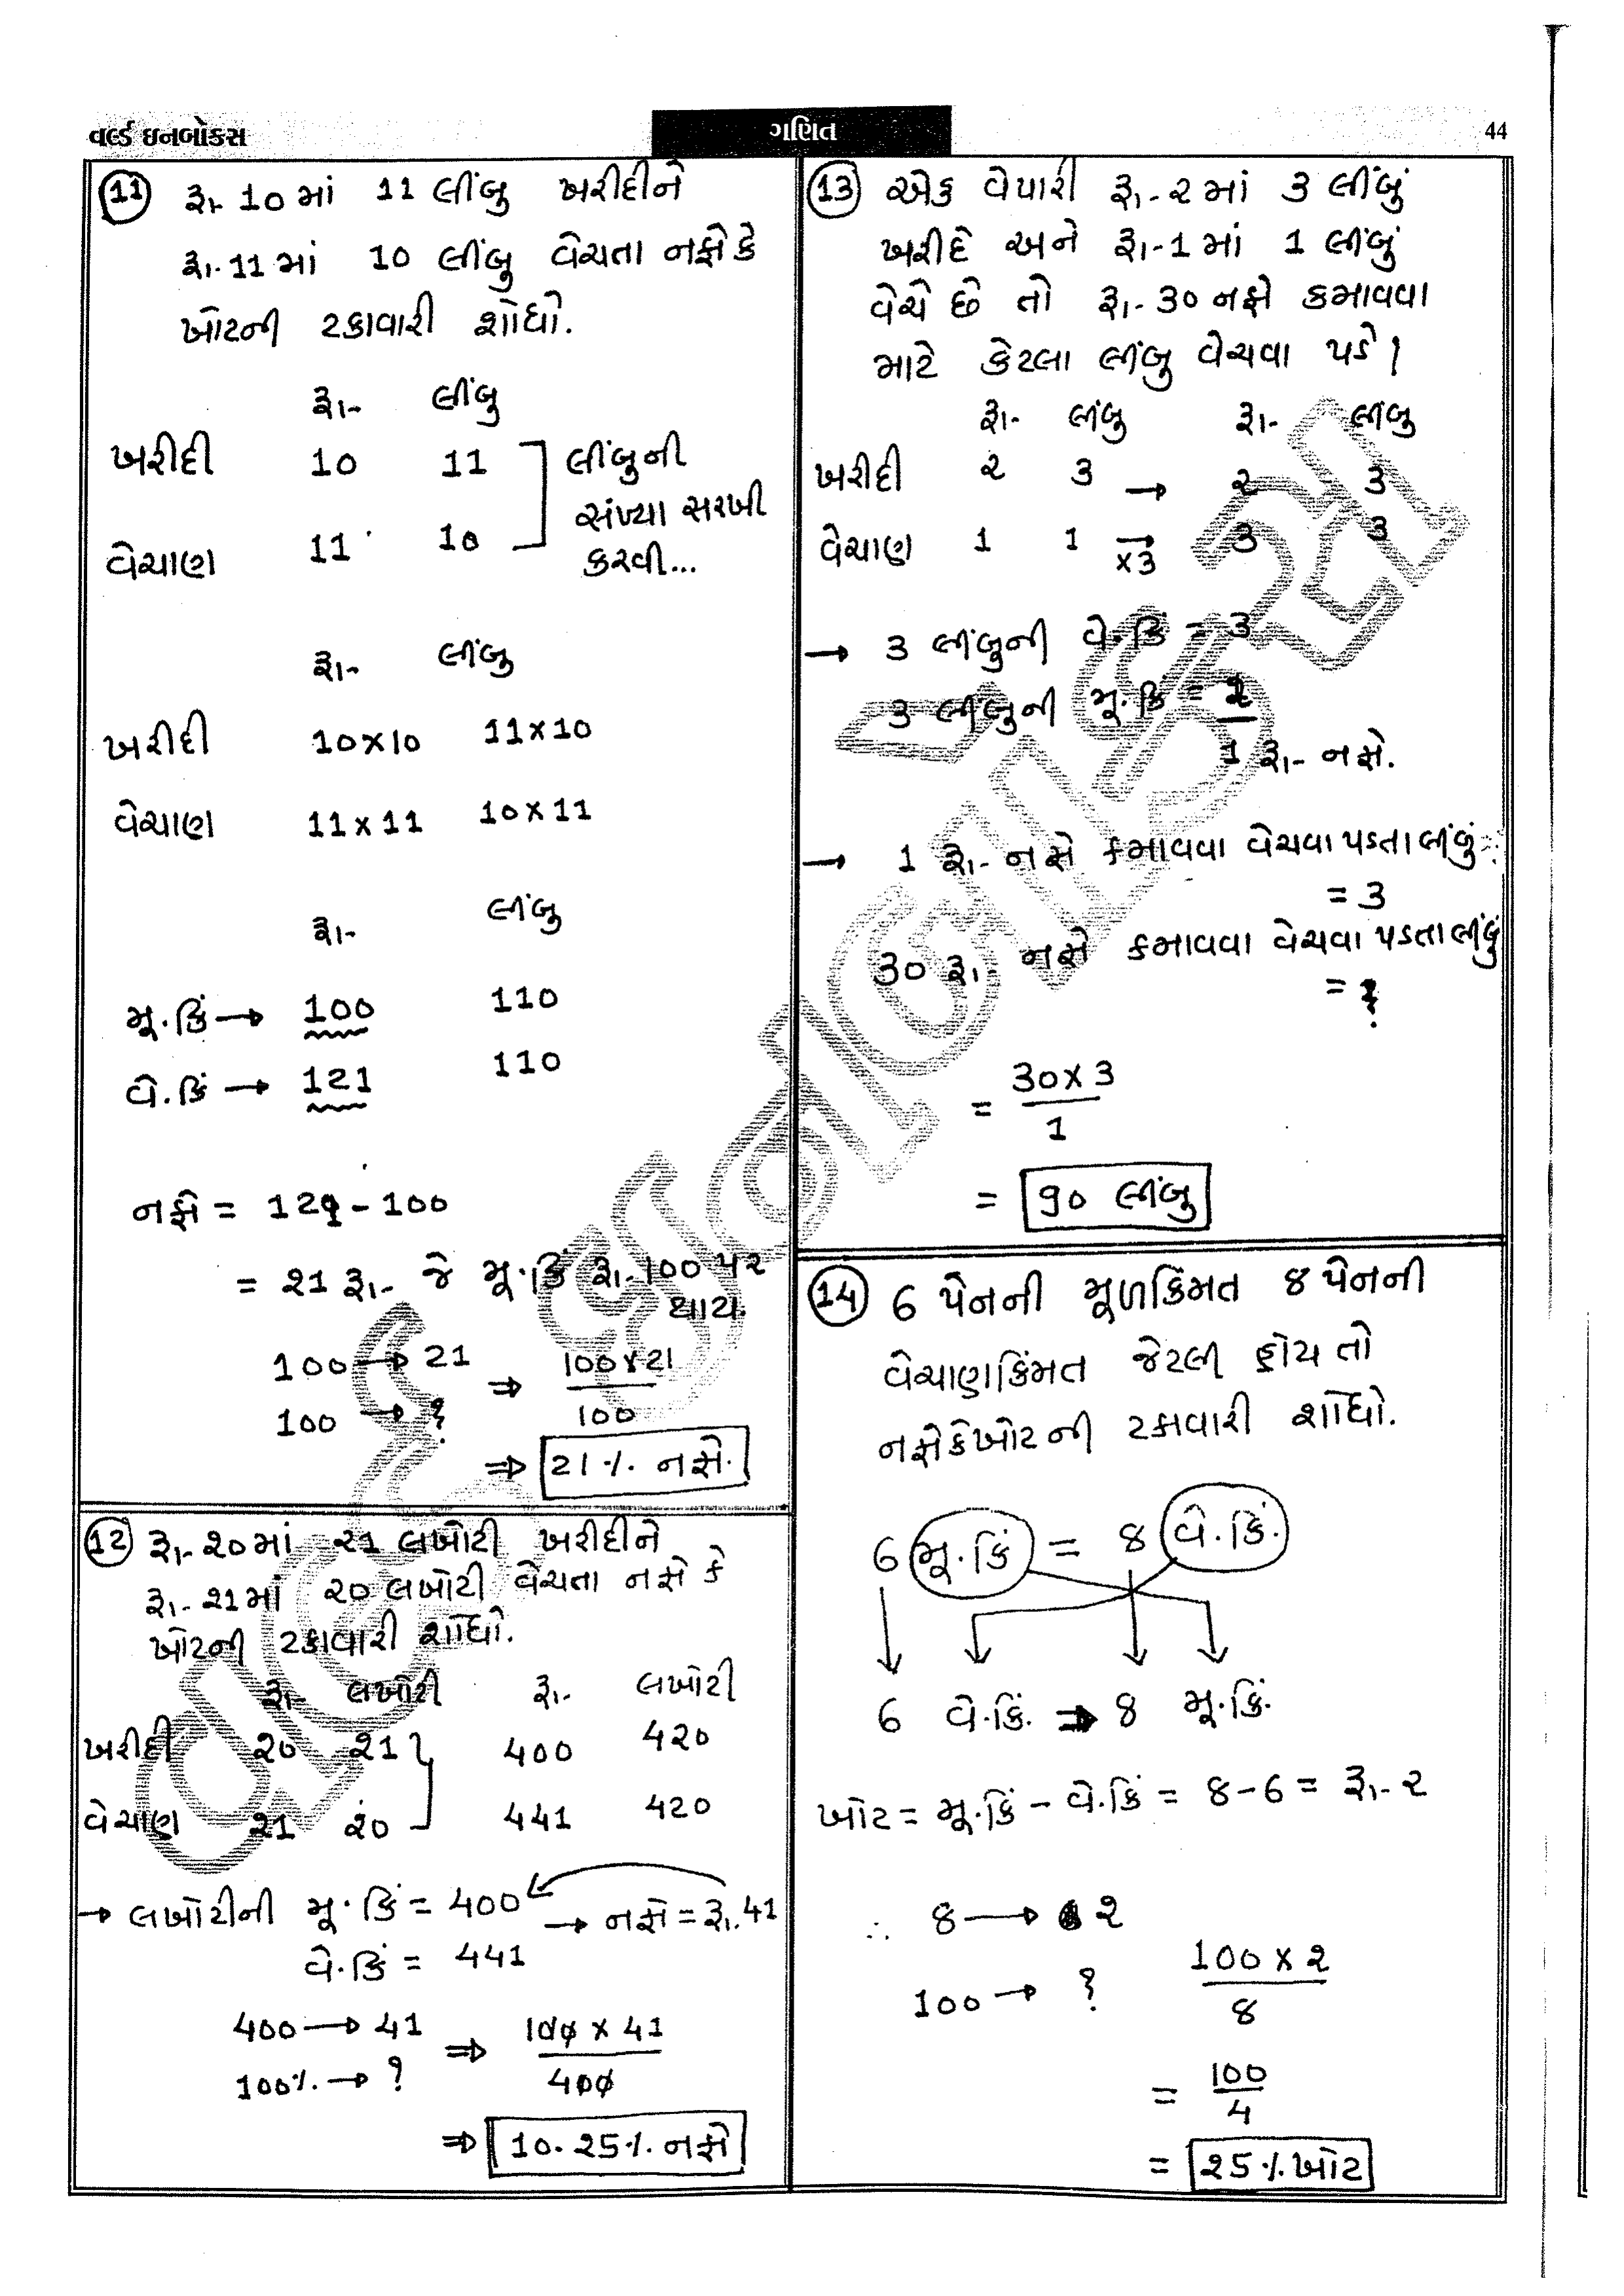 વર્લ્ડ ઇનબોક્સ
ગણિત
44
(11) રૂા- 10 માં 11 લીંબુ ખરીદીને
રૂા- 11 માં 10 લીંબુ વેચતા નફો કે
ખોટની ટકાવારી શોધો.
રૂા- લીંબુ
ખરીદી 10 11 લીંબુની
સંખ્યા સરખી
વેચાણ 11 10 કરવી...
રૂા- લીંબુ
ખરીદી 10×10 11×10
વેચાણ 11×11 10×11
રૂા- લીંબુ
મૂ.કિં → 100 110
વે.કિં → 121 110
નફો = 121 - 100
= 21 રૂા- જે મૂ.કિં રૂા-100 પર
થાય.
100 → 21 ⇒ 100×21 / 100
100 → ?
⇒ 21% નફો.
(12) રૂા- 20 માં 21 લખોટી ખરીદીને
રૂા- 21 માં 20 લખોટી વેચતા નફો કે
ખોટની ટકાવારી શોધો.
રૂા- લખોટી રૂા- લખોટી
ખરીદી 20 21 400 420
વેચાણ 21 20 441 420
→ લખોટીની મૂ.કિં = 400 → નફો = રૂા.41
વે.કિં = 441
400 → 41 ⇒ 100 × 41 / 400
100% → ?
⇒ 10.25% નફો
(13) એક વેપારી રૂા-2 માં 3 લીંબું
ખરીદે અને રૂા-1 માં 1 લીંબું
વેચે છે તો રૂા- 30 નફો કમાવવા
માટે કેટલા લીંબુ વેચવા પડે?
રૂા- લીંબુ રૂા- લીંબુ
ખરીદી 2 3 → 2 3
વેચાણ 1 1 → ×3 3 3
→ 3 લીંબુની વે.કિં = 3
3 લીંબુની મૂ.કિં = 2
1 રૂા- નફો.
→ 1 રૂા- નફો કમાવવા વેચવા પડતા લીંબું
= 3
30 રૂા- નફો કમાવવા વેચવા પડતા લીંબું
= ?
= 30×3 / 1
= 90 લીંબુ
(14) 6 પેનની મૂળકિંમત 8 પેનની
વેચાણકિંમત જેટલી હોય તો
નફોકેખોટની ટકાવારી શોધો.
6 મૂ.કિં = 8 વે.કિં.
6 વે.કિં. ⇒ 8 મૂ.કિં.
ખોટ = મૂ.કિં - વે.કિં = 8-6 = રૂા-2
∴ 8 → 2
100 → ? 100 × 2 / 8
= 100 / 4
= 25% ખોટ